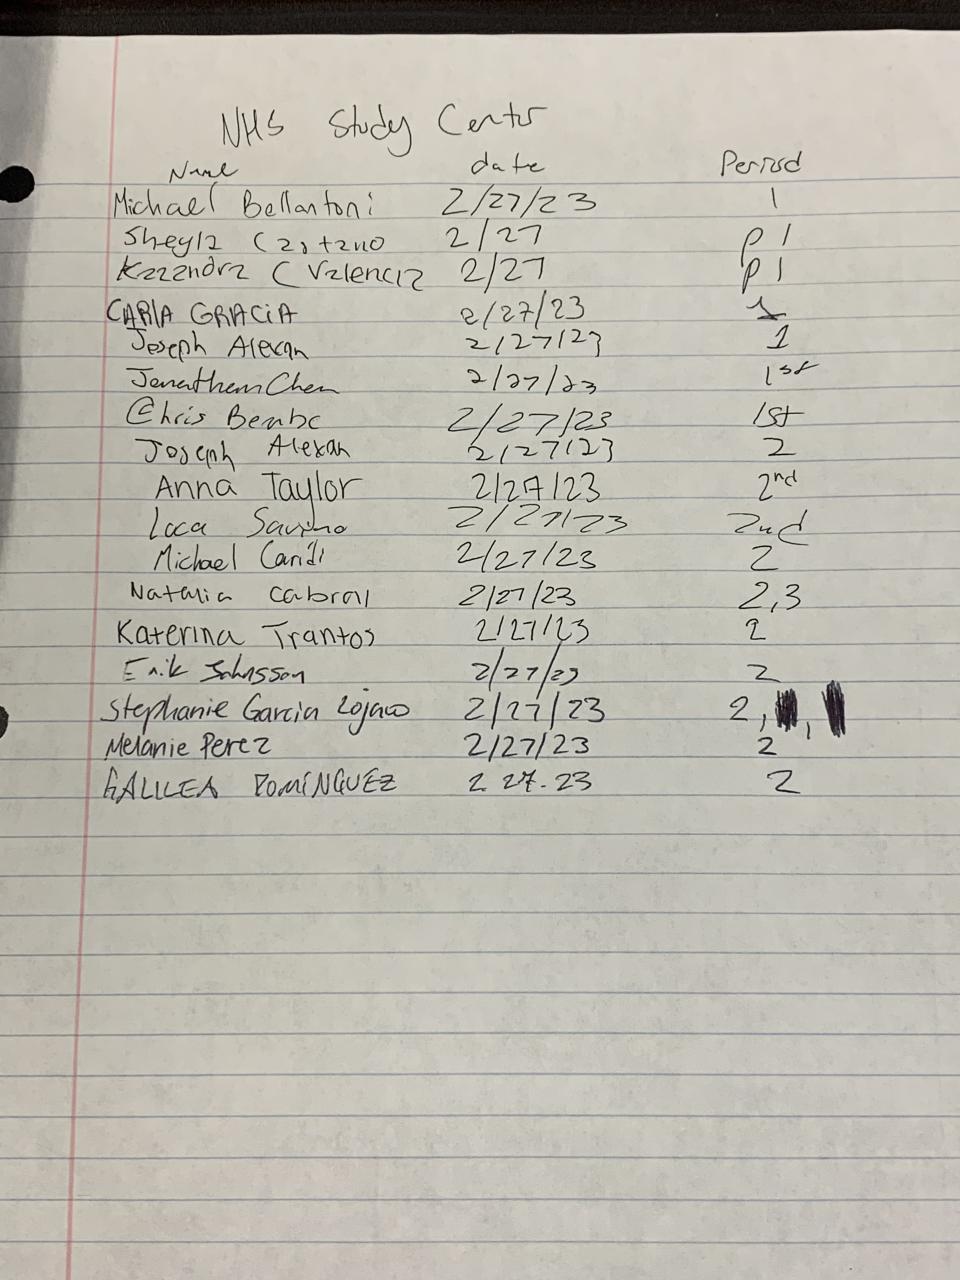 NHS Study Center
Name date Period
Michael Bellantoni 2/27/23 1
Sheyla Castano 2/27 p 1
Kazandra C Valencia 2/27 p 1
CARLA GRACiA 2/27/23 1
Joseph Alexan 2/27/23 1
Jonathan Chen 2/27/23 1st
Chris 2/27/23 1st
Joseph Alexan 2/27/23 2
Anna Taylor 2/27/23 2nd
Luca Savino 2/27/23 2nd
Michael 2/27/23 2
Natalia Cabral 2/27/23 2,3
Katerina Trantos 2/27/23 2
Erik Johnsson 2/27/23 2
Stephanie Garcia 2/27/23 2,
Melanie Perez 2/27/23 2
GALILEA DOMíNGUEZ 2.27.23 2